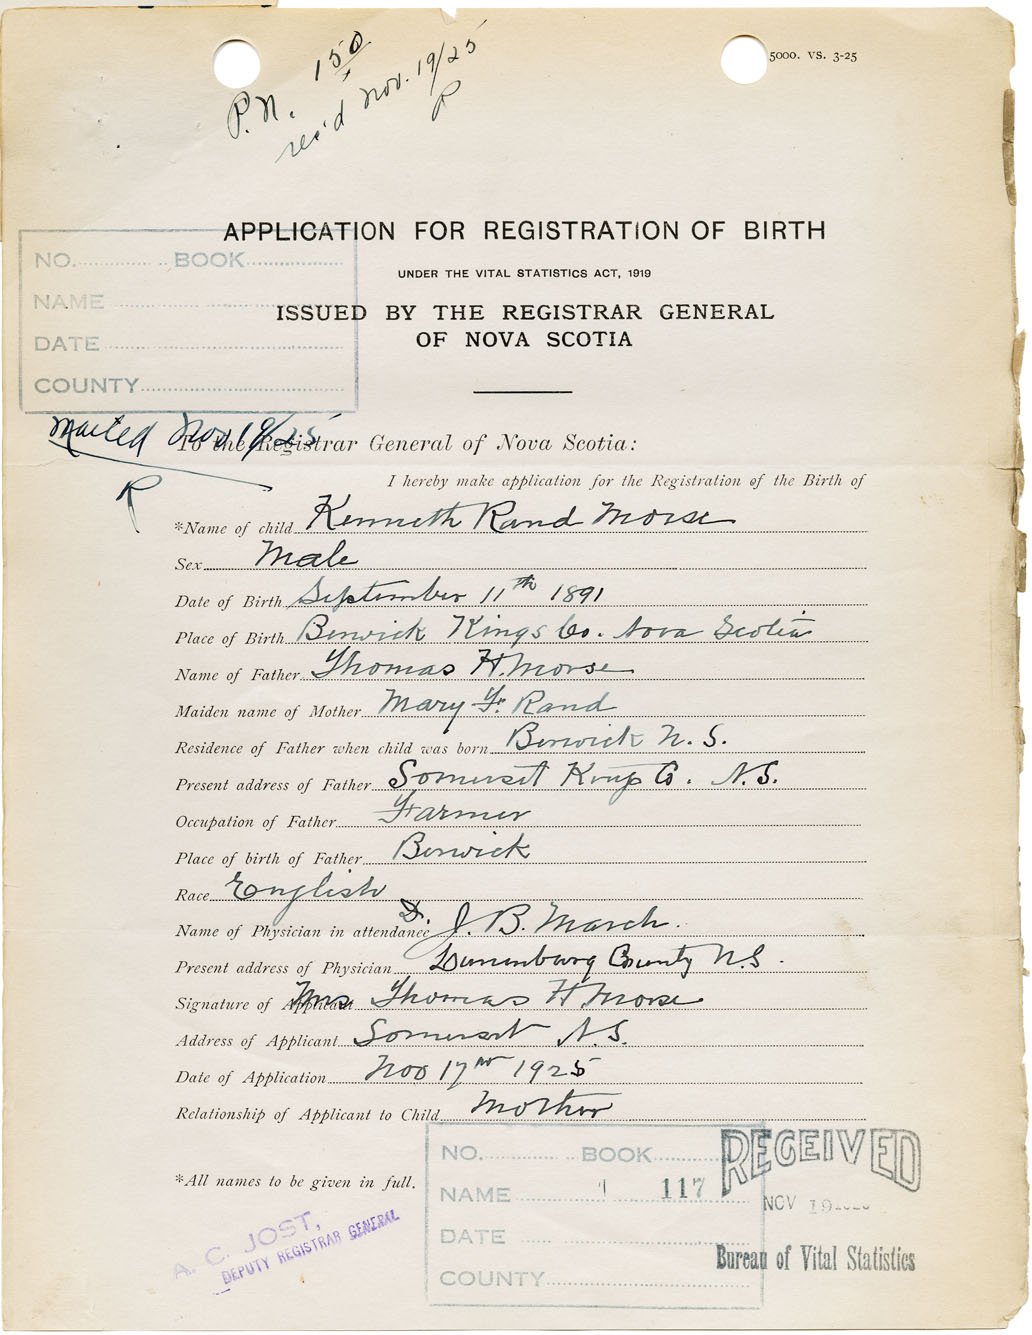 5000. VS. 3-25
P.N. 150
rec'd Nov. 19/25
R
APPLICATION FOR REGISTRATION OF BIRTH
UNDER THE VITAL STATISTICS ACT, 1919
ISSUED BY THE REGISTRAR GENERAL
OF NOVA SCOTIA
NO. BOOK
NAME
DATE
COUNTY
Mailed Nov 19/25
R
To the Registrar General of Nova Scotia:
I hereby make application for the Registration of the Birth of
*Name of child Kenneth Rand Morse
Sex Male
Date of Birth September 11th 1891
Place of Birth Berwick Kings Co. Nova Scotia
Name of Father Thomas H. Morse
Maiden name of Mother Mary F. Rand
Residence of Father when child was born Berwick N. S.
Present address of Father Somerset Kings Co. N.S.
Occupation of Father Farmer
Place of birth of Father Berwick
Race English
Name of Physician in attendance D. J. B. March.
Present address of Physician Lunenburg County N.S.
Signature of Applicant Mrs Thomas H Morse
Address of Applicant Somerset N.S.
Date of Application Nov 17 1925
Relationship of Applicant to Child Mother
*All names to be given in full.
NO. BOOK
NAME 117
DATE
COUNTY
RECEIVED
NOV 19
Bureau of Vital Statistics
A. C. JOST,
DEPUTY REGISTRAR GENERAL